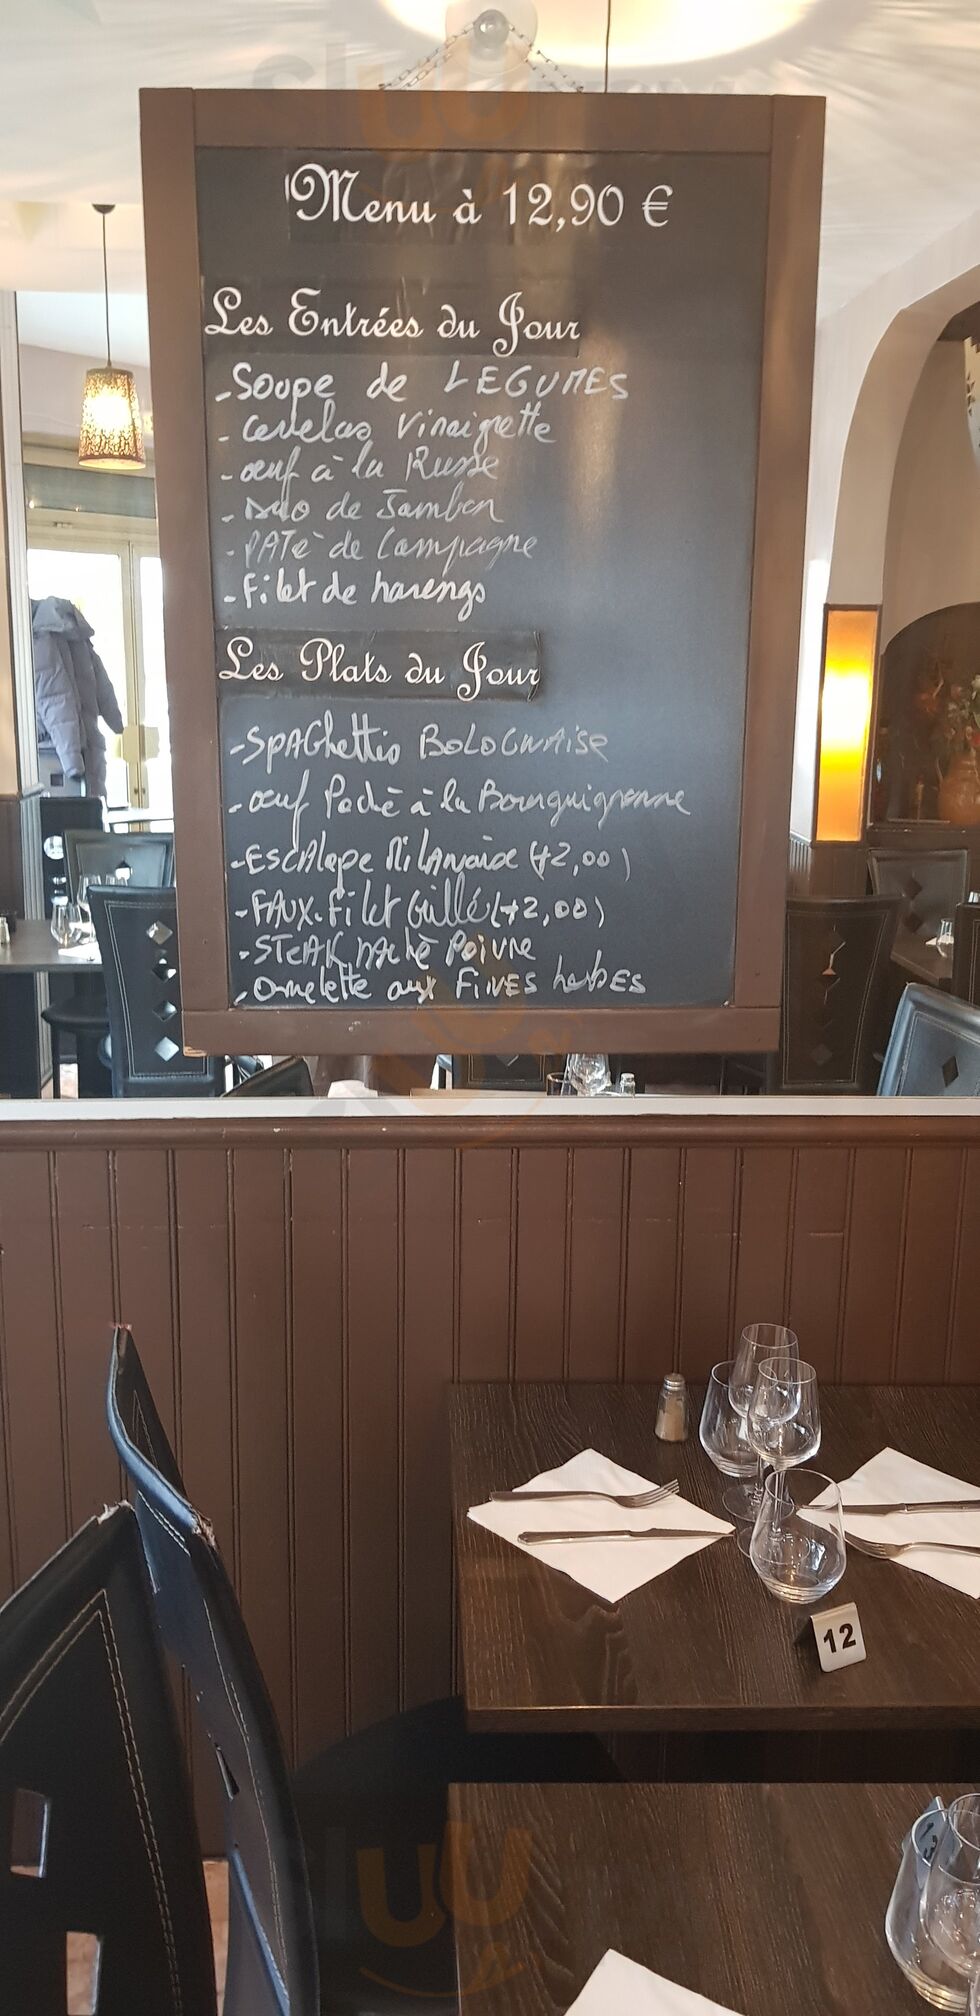 Menu à 12,90 €
Les Entrées du Jour
-Soupe de LEGUMES
-Cervelas Vinaigrette
-œuf à la Russe
-Duo de Jambon
-PATé de Campagne
-Filet de harengs
Les Plats du Jour
-SPAGhettis BOLOGNAiSe
-œuf Poché à la Bourguignonne
-ESCAlope MiLANaise (+2,00)
-FAUX-Filet Grillé (+2,00)
-STEAK hAché Poivre
-Omelette aux FiNES herbES
12
13